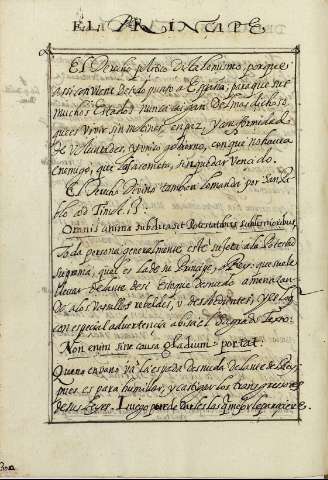 EL PRINCIPE
El Derecho político dicta lo mismo, porque
assi conviene de todo punto a España, para que sus
muchos Estados nunca caigan del mas dichoso,
que es vivir sin motines, en paz, y conformidad
de voluntades, y unico gobierno, con que no havra
enemigo, que la acometa, sin quedar vencido.
El Derecho Divino tambien lo manda por San Pa
blo ad Timot.
Omnis anima subdita sit Potestatibus sublimioribus
Toda persona generalmente este sujeta a la Potestad
suprema, que es la de su Principe, o Rey, que suele
llevar delante de si estoque desnudo amenazan
do a los vasallos rebeldes, y desobedientes, y es lo q
con especial advertencia abisa el Sagrado Texto.
Non enim sine causa gladium portat.
Que no en vano va la espada desnuda delante de los Reyes,
pues es para humillar, y castigar los transgressores
de sus Leyes. Luego puede darles las q mejor le pareciere.